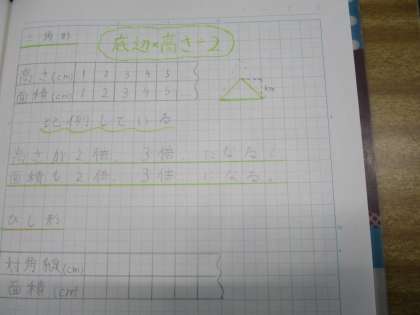 三角形
底辺×高さ÷2
高さ(cm) 1 2 3 4 5
面積(cm) 1 2 3 4 5
比例している
高さが2倍、3倍、になると
面積も2倍、3倍になる。
ひし形
対角線(cm)
面積(cm²